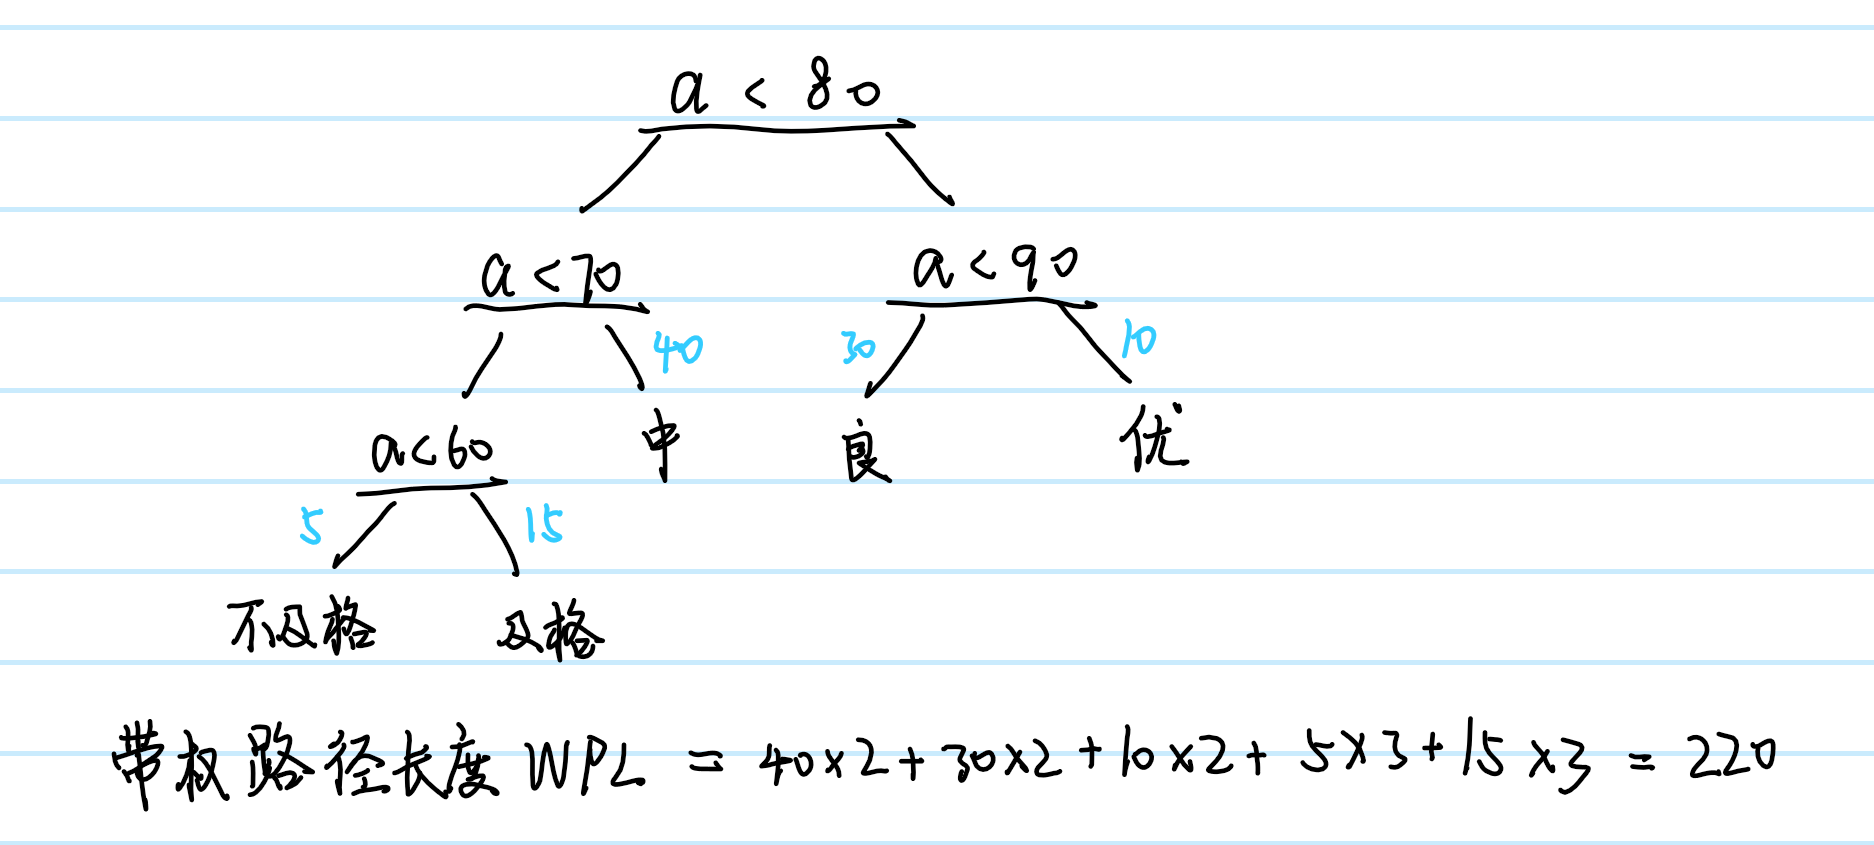 a < 80
a < 70 a < 90
40 30 10
a < 60 中 良 优
5 15
不及格 及格
带权路径长度 WPL = 40×2+30×2+10×2+5×3+15×3=220